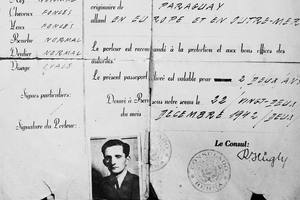 Nez NORMAL
Cheveux FONCÉS
Yeux FONCÉS
Bouche NORMAL
Dentier NORMAL
Visage OVALE
Signes particuliers:
Signature du Porteur:
originaire de PARAGUAY
allant EN EUROPE ET EN OUTRE-MER
Le porteur est recommandé à la protection et aux bons offices des
autorités.
Le présent passeport livré est valable pour 2, DEUX ANS
Donné à Berne sous notre seing le 22 VINGT-DEUX
du mois DÉCEMBRE 1942 /DEUX
Le Consul:
CONSULADO
BERNA